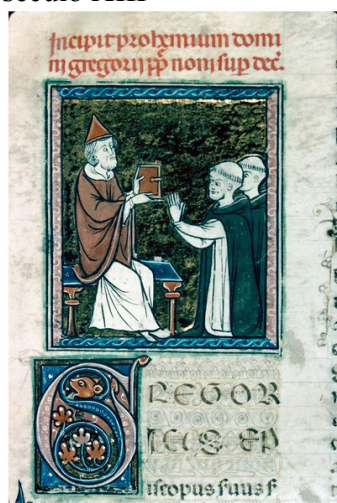 século XIII
Incipit prohemium domi
ni gregorii pp noni sup dec.
GREGOR
IUS EP
iscopus suus s